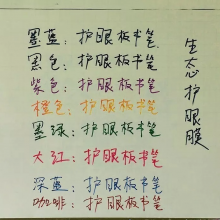 墨蓝：护眼板书笔
黑色：护眼板书笔
紫色：护眼板书笔
橙色：护眼板书笔
墨绿：护眼板书笔
大红：护眼板书笔
深蓝：护眼板书笔
咖啡：护眼板书笔
生态护眼膜